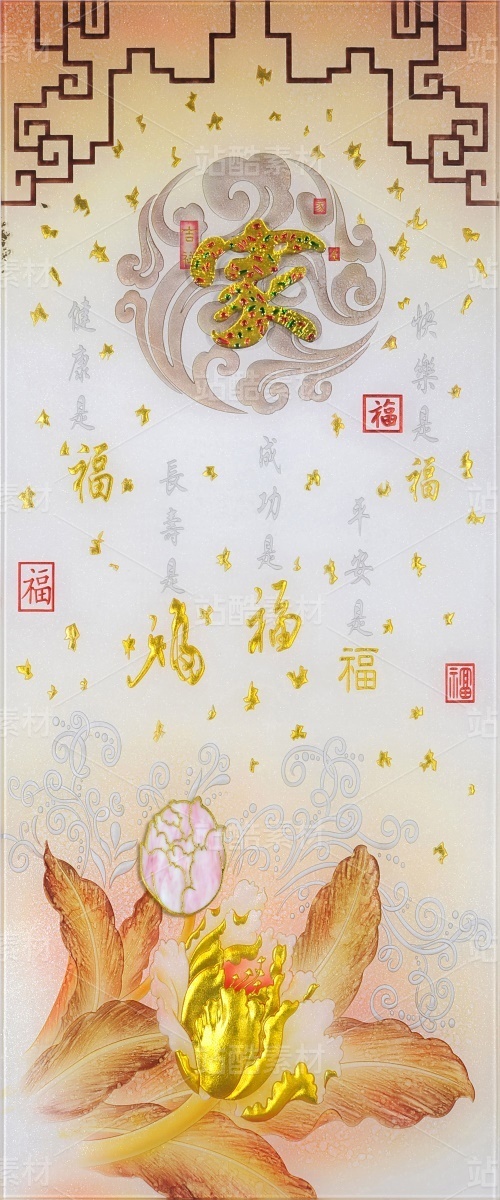 家
吉祥
快樂是福
平安是福
成功是福
長壽是福
健康是福
福
福
福
站酷素材